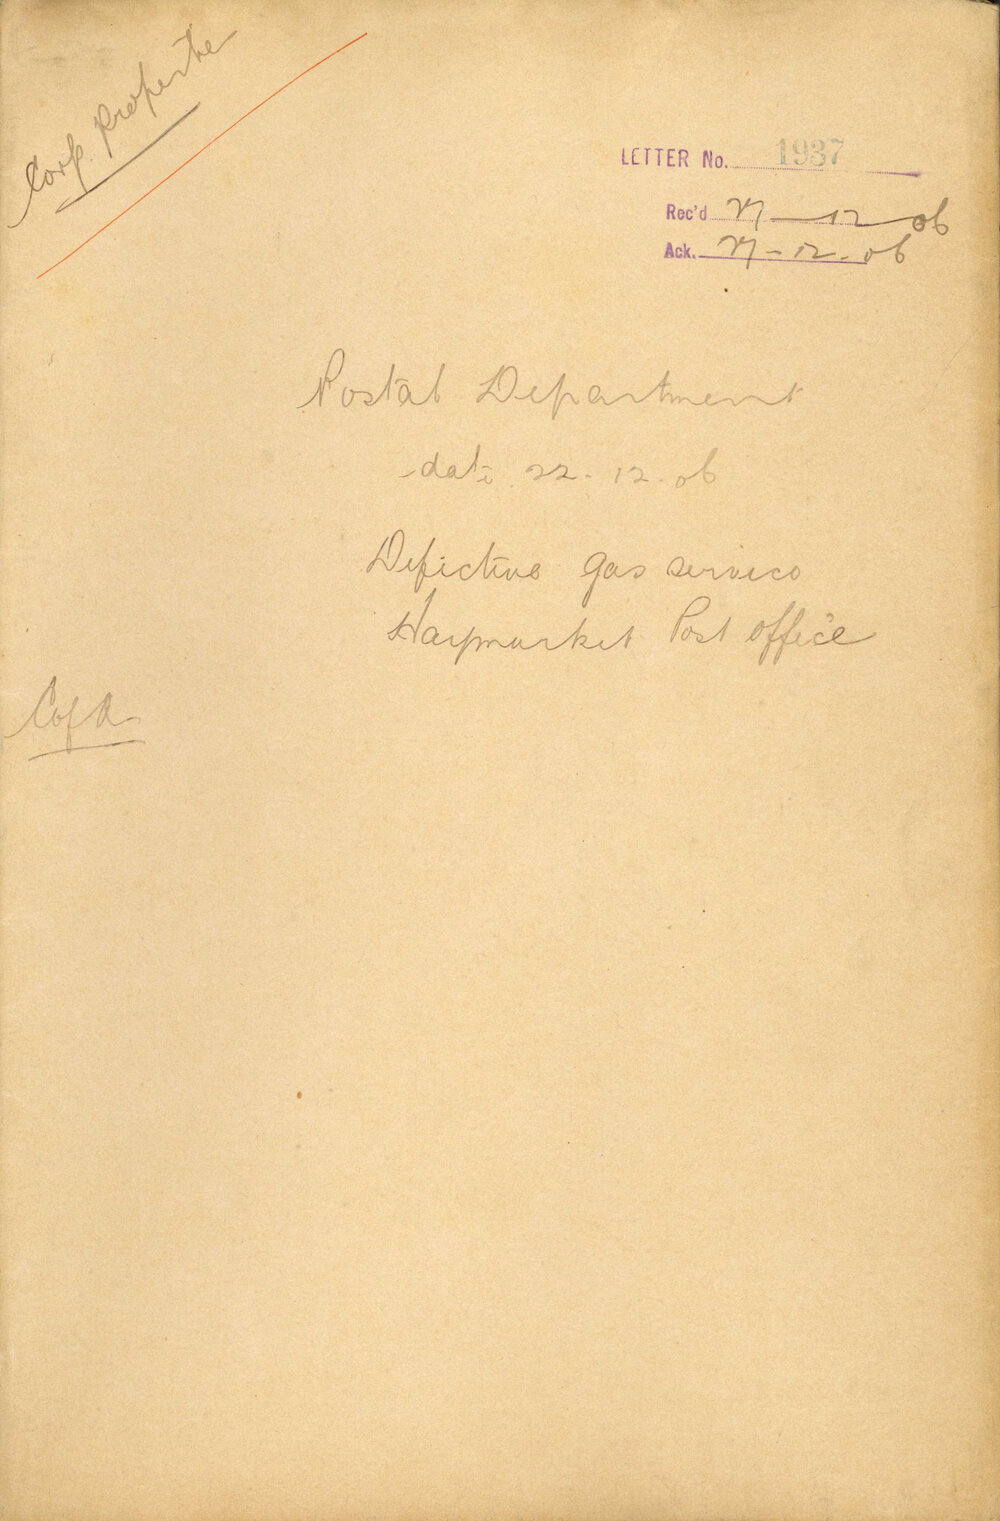 Corp. Propertie
LETTER No. 1937
Rec'd 27-12-06
Ack. 27-12-06
Postal Department
date 22-12-06
Defective gas service
Haymarket Post Office